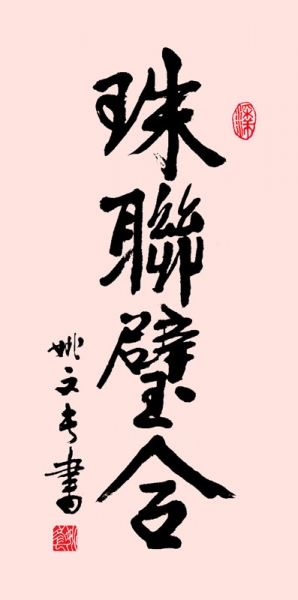 珠聯璧合
姚文長書